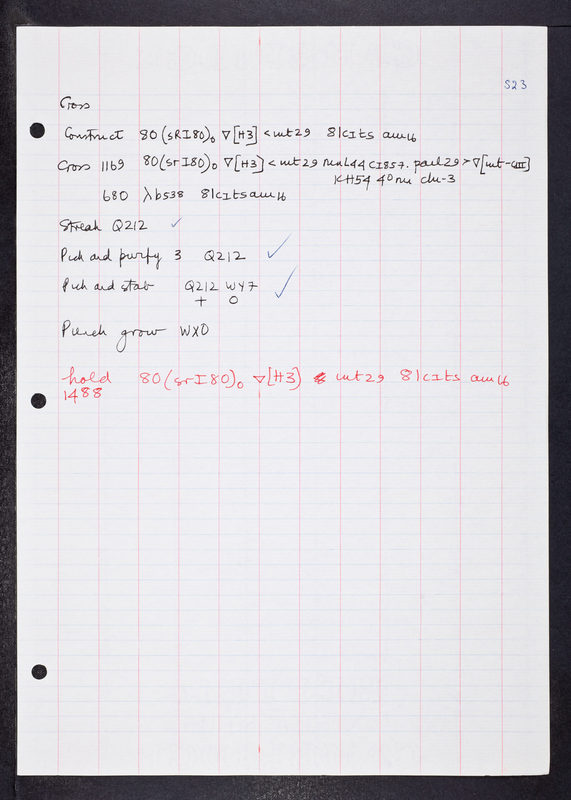 S23
Cross
Construct 80(sRI80)₀ ∇[H3] < int29 81cIts am16
Cross 1169 80(srI80)₀ ∇[H3) < int29 ninL44 CI857. pal29 > ∇[int-cIII]
KH54 40 nu chi-3
680 λb538 81cIts am16
Streak Q212 ✓
Pick and purify 3 Q212 ✓
Pick and stab Q212 WY7 ✓
+ O
Punch grow WXO
hold 80(srI80)₀ ∇[H3) int29 81cIts am16
1488